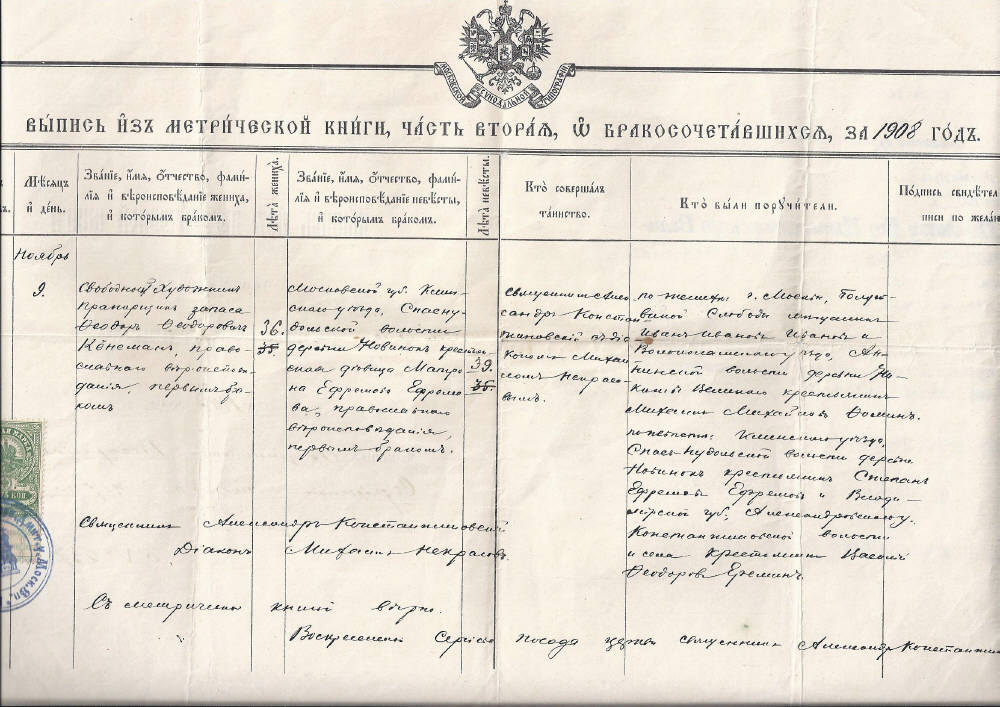 МОСКОВСКОЙ СѴНОДАЛЬНОЙ ТИПОГРАФІИ
ВЫ́ПИСЬ И҆ЗЪ МЕТРИ́ЧЕСКОЙ КНИ́ГИ, ЧА́СТЬ ВТОРА́Ѧ, Ѡ҆ БРАКОСОЧЕТА́ВШИХСѦ, ЗА 1908 ГО́ДЪ.
Мѣ́сѧцъ
и҆ де́нь.
Зва́нїе, и҆́мѧ, ѻ҆́тчество, фами́-
лїѧ и҆ вѣроисповѣ́данїе жениха̀,
и҆ кото́рымъ бра́комъ.
Лѣ́та жениха̀.
Зва́нїе, и҆́мѧ, ѻ҆́тчество, фами́-
лїѧ и҆ вѣроисповѣ́данїе невѣ́сты,
и҆ кото́рымъ бра́комъ.
Лѣ́та невѣ́сты.
Кто̀ соверша́лъ
та́инство.
Кто̀ бы́ли порꙋчи́тели.
По́дпись свидѣ́тел
писи по жела́н
Ноябрь
9.
Свободный Художникъ
Прапорщикъ запаса
Ѳеодоръ Ѳеодоровичъ
Кёнеманъ, право-
славнаго вѣроисповѣ-
данія, первымъ бра-
комъ
36.
35.
Московской губ. Клин-
скаго уѣзда, Спасну-
дольской волости
деревни Новинокъ кресть-
янская дѣвица Матро-
на Ефремова Ефремо-
ва, православнаго
вѣроисповѣданія,
первымъ бракомъ.
39.
35.
Священникъ Алек-
сандръ Констан-
тиновскій съ діа-
кономъ Михаи-
ломъ Некрасо-
вымъ.
по женихѣ: г. Москвы, Голут-
виной Слободы мѣщанинъ
Иванъ Ивановъ Ивановъ и
Волоколамскаго уѣзда, Ан-
нинской волости деревни
крестьянинъ
Михаилъ Михайловъ Ѳоминъ.
по невѣстѣ: Клинскаго уѣзда,
Спасъ-Нудольской волости дерев.
Новинокъ крестьянинъ Степанъ
Ефремовъ Ефремовъ и Влади-
мірской губ. Александровскаго у.
Константиновской волости
и села Крестьянинъ Василій
Ѳеодоровъ Ереминъ.
Священникъ Александръ Константиновскій
Діаконъ Михаилъ Некрасовъ.
Съ метрическою книгою вѣрно.
Воскресенской Сергіева посада церкви священникъ Александръ Константин